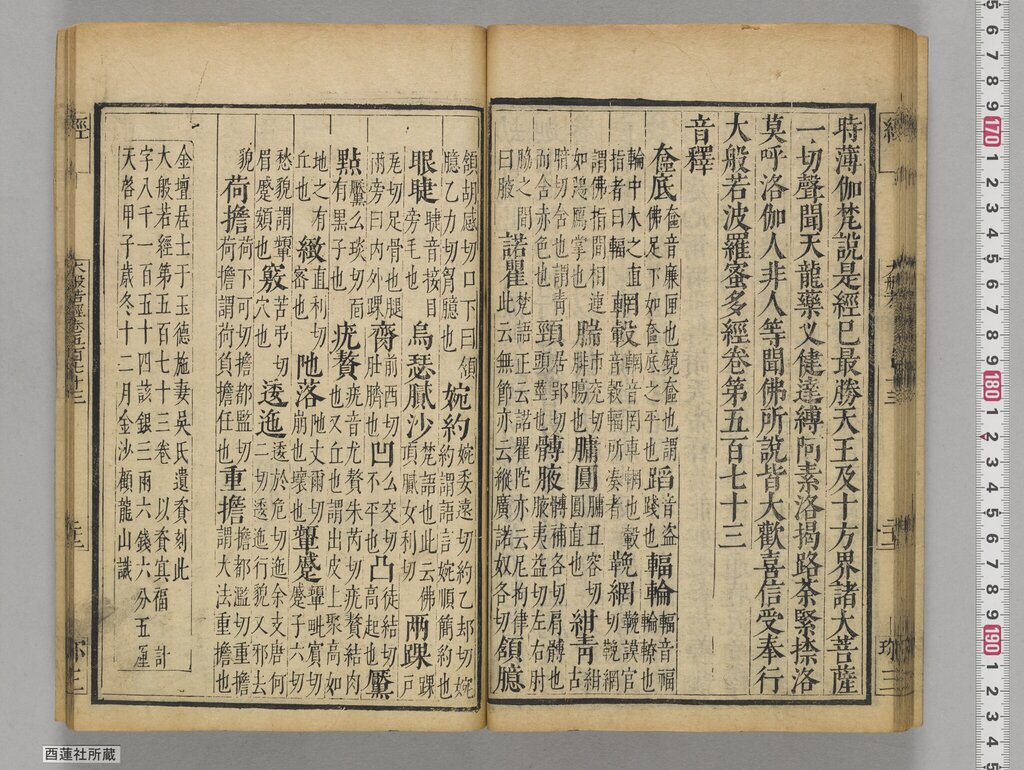 時薄伽梵說是經已最勝天王及十方界諸大菩薩
一切聲聞天龍藥叉健達縛阿素洛揭路荼緊捺洛
莫呼洛伽人非人等聞佛所說皆大歡喜信受奉行
大般若波羅蜜多經卷第五百七十三
音釋
奩底 奩音廉匣也鏡奩也謂佛足下如奩底之平也 蹈 音盜踐也 輻輪 輻音福輪轑也
輪中木之直指者曰輻 輞轂 輞音罔車輞也轂音穀輻所湊者 鞔網 鞔謨官切鞔網
謂佛指間相連如鴈鷹掌也 腨 市兖切腓腸也 𦟛圓 𦟛丑容切圓直也 紺青 紺古
暗切謂青而含赤色也 頸 居郢切頭莖也 髆腋 髆補各切肩髆也腋夷益切左右肘
脇之間曰腋 諾瞿 梵語正云諾瞿陀亦云尼拘律此云無節亦云縱廣諾奴各切 領臆
領胡感切口下曰領臆乙力切胷臆也 婉約 婉委遠切約乙却切婉約謂語婉順簡約也
眼睫 睫音接目旁毛也 烏瑟膩沙 梵語也此云佛頂膩女利切 兩踝 踝戶
瓦切足骨也腿兩旁曰內外踝 齊 前西切肚臍也 凹 么交切不平也 凸 徒結切高起也 黶
點 黶么琰切面有黑子也 疣贅 疣音尤贅朱芮切疣贅結肉也又丘也謂出皮上聚高如
地之有丘也 緻 直利切密也 阤落 阤丈爾切崩也壞也 顰蹙 顰毗賓切蹙子六切
愁貌謂顰眉蹙頞也 竅 苦弔切穴也 逶迤 逶於危切迤余支唐何二切逶迤行貌又邪去
貌 荷擔 荷下可切擔都監切荷擔謂荷負擔任也 重擔 擔都濫切重擔謂大法重擔也
金壇居士于玉德施妻吳氏遺賫刻此
大般若經第五百七十三卷 以資冥福 計
字八千一百五十四該銀三兩六錢六分五厘
天啓甲子歲冬十二月金沙顧龍山識
大般若經卷五百七十三
酉蓮社所蔵